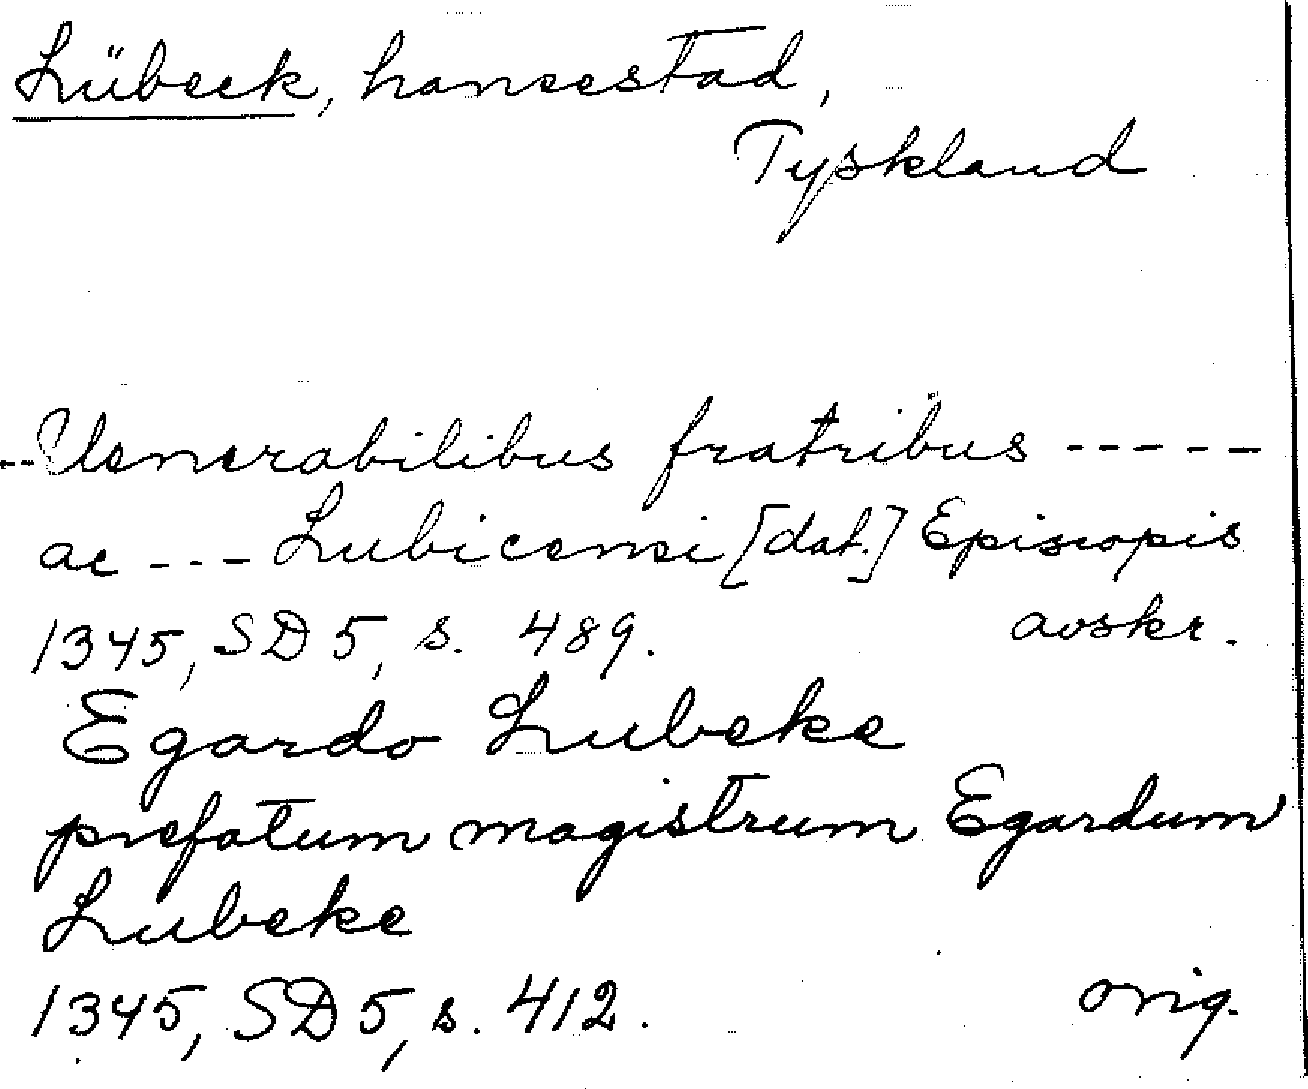 Lübeck, hansestad,
Tyskland
--Uenerabilibus fratribus -----
ac --- Lubicensi [dat.] Episcopis
1345, SD 5, s. 489. avskr.
Egardo Lubeke
prefatum magistrum Egardum
Lubeke
1345, SD 5, s. 412. orig.